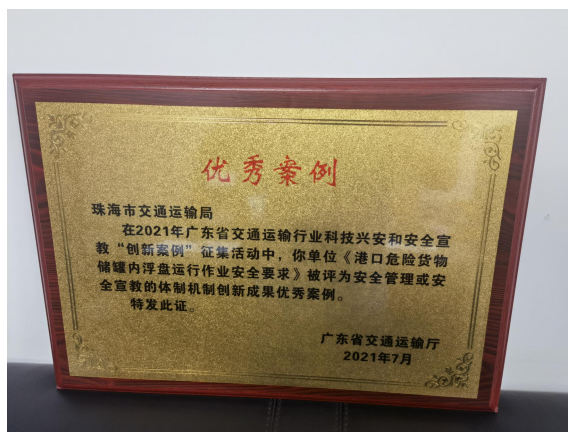 优秀案例
珠海市交通运输局
在2021年广东省交通运输行业科技兴安和安全宣
教“创新案例”征集活动中，你单位《港口危险货物
储罐内浮盘运行作业安全要求》被评为安全管理或安
全宣教的体制机制创新成果优秀案例。
特发此证。
广东省交通运输厅
2021年7月